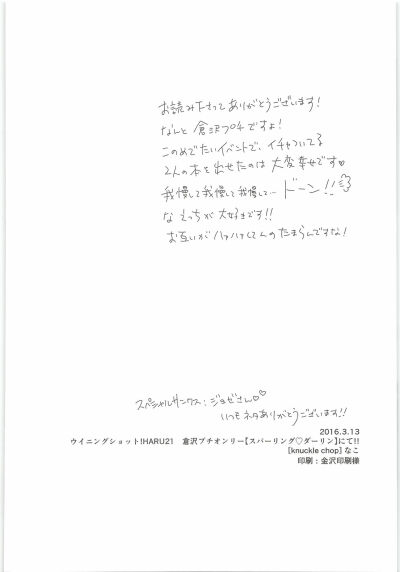 お読み下さってありがとうございます!
なんと倉沢プチですよ!
このめでたいイベントで、イチャついてる
2人の本を出せたのは大変幸せです♡
我慢して我慢して我慢して… ドーン!!
な えっちが大好きです!!
お互いがハァハァしてんのたまらんですな!
スペシャルサンクス:ジョゼさん♡♡
いつもネタありがとうございます!!
2016.3.13
ウイニングショット!HARU21 倉沢プチオンリー【スパーリング♡ダーリン】にて!!
[knuckle chop] なこ
印刷:金沢印刷様